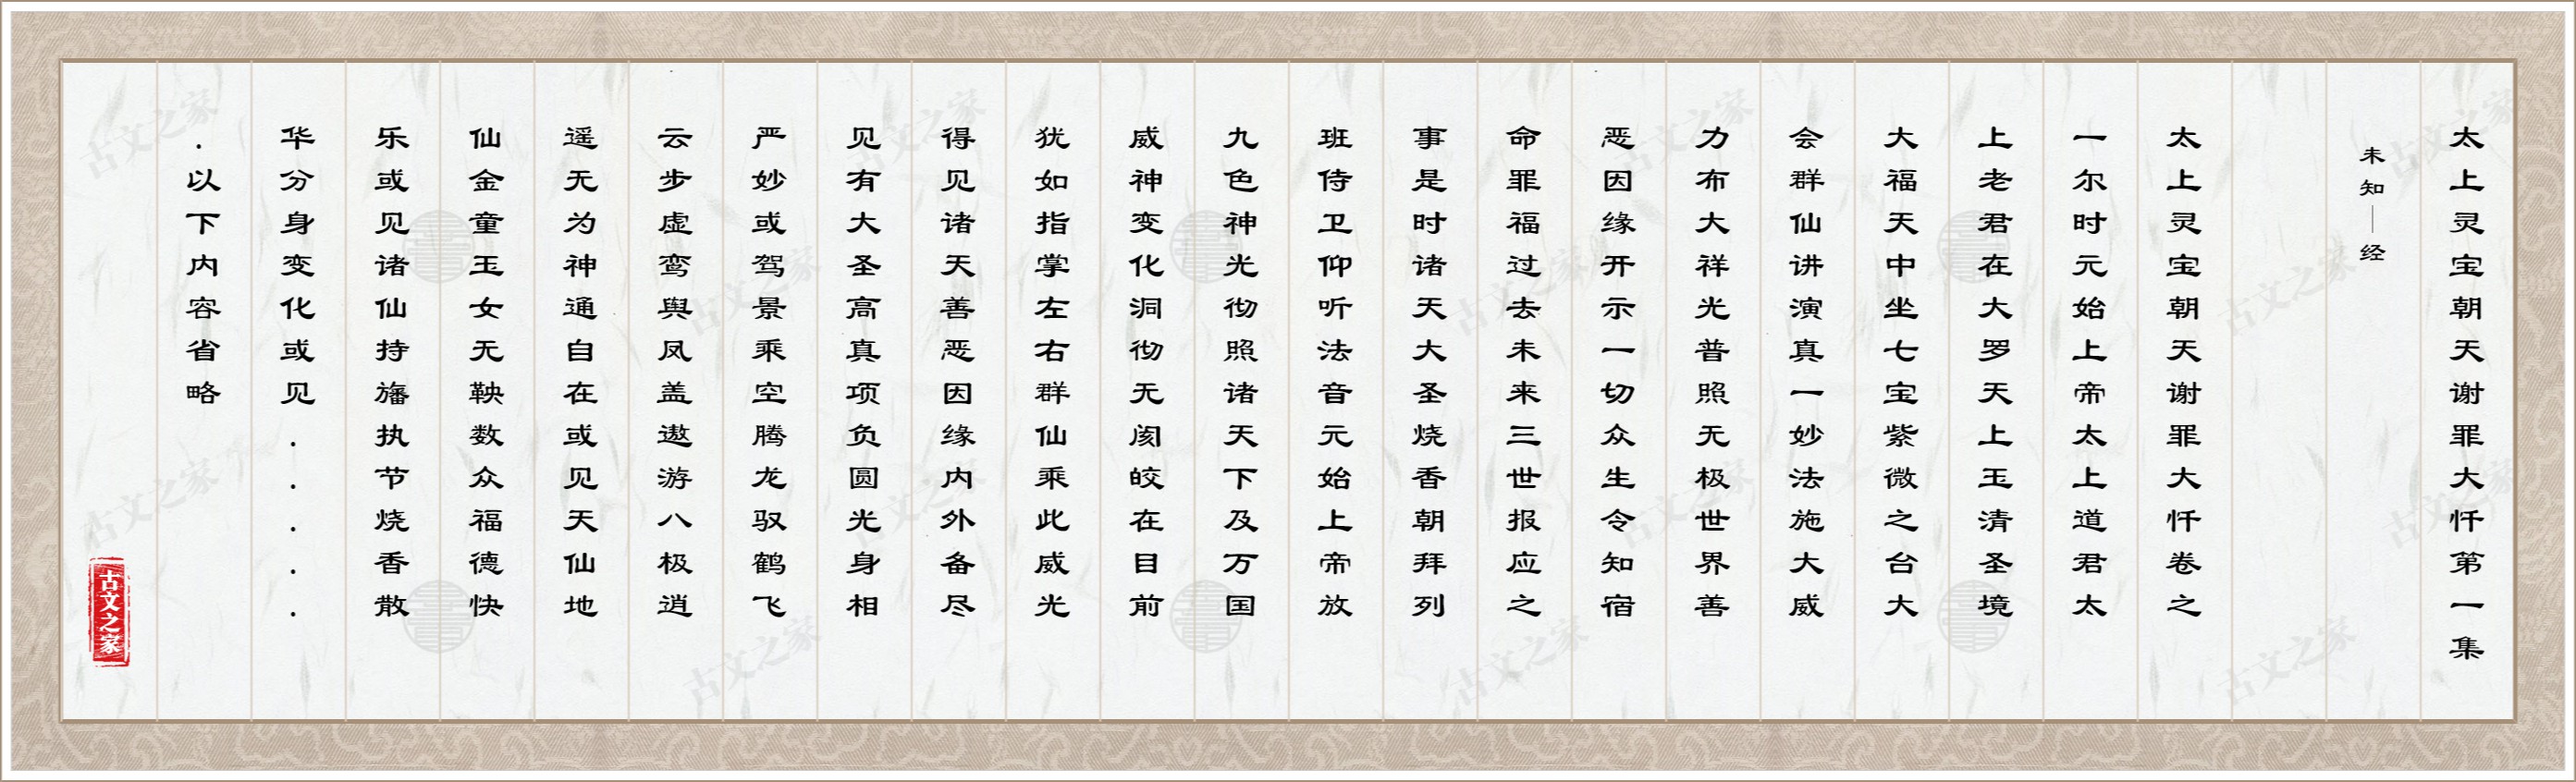 太上灵宝朝天谢罪大忏第一集
未知—经
太上灵宝朝天谢罪大忏卷之
一尔时元始上帝太上道君太
上老君在大罗天上玉清圣境
大福天中坐七宝紫微之台大
会群仙讲演真一妙法施大威
力布大祥光普照无极世界善
恶因缘开示一切众生令知宿
命罪福过去未来三世报应之
事是时诸天大圣烧香朝拜列
班侍卫仰听法音元始上帝放
九色神光彻照诸天下及万国
威神变化洞彻无阂皎在目前
犹如指掌左右群仙乘此威光
得见诸天善恶因缘内外备尽
见有大圣高真项负圆光身相
严妙或驾景乘空腾龙驭鹤飞
云步虚鸾舆凤盖遨游八极逍
遥无为神通自在或见天仙地
仙金童玉女无鞅数众福德快
乐或见诸仙持旛执节烧香散
华分身变化或见.....
.以下内容省略
古文之家